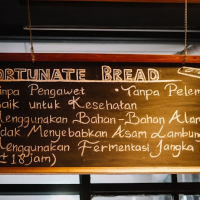 ORTUNATE BREAD
npa Pengawet • Tanpa Pelem
aik untuk Kesehatan
enggunakan Bahan-Bahan Alam
dak Menyebabkan Asam Lambung
enggunakan Fermentasi Jangka
± 18 jam)